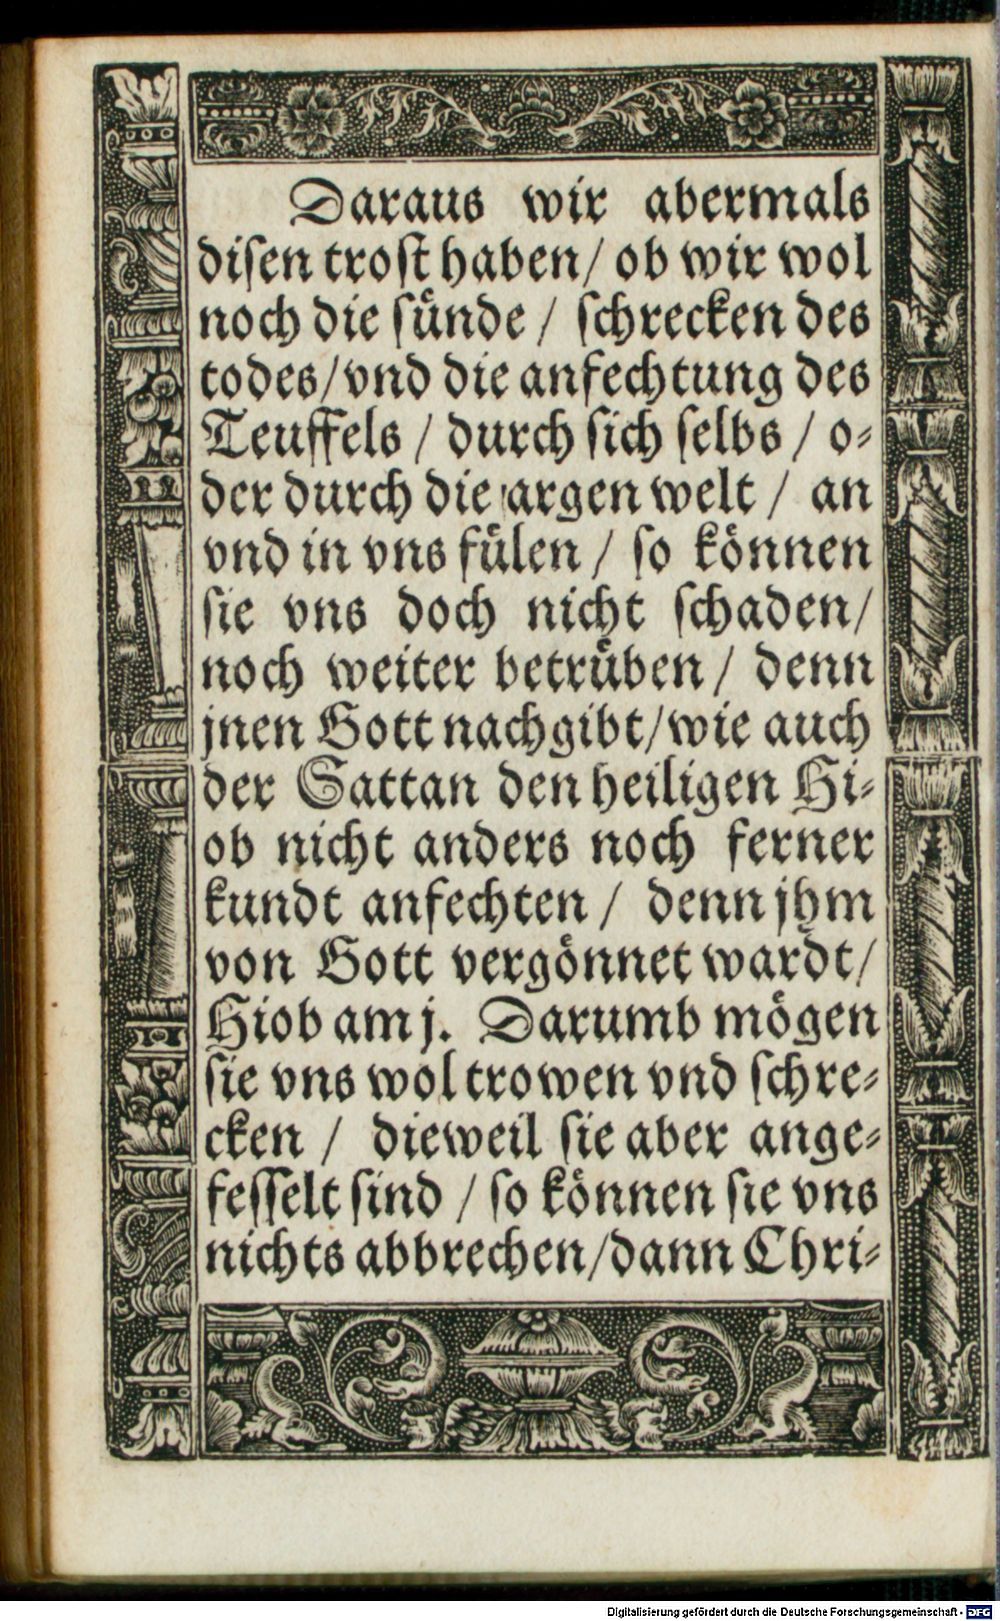 Daraus wir abermals
disen trost haben/ ob wir wol
noch die sünde / schrecken des
todes/vnd die anfechtung des
Teuffels / durch sich selbs / o-
der durch die argen welt / an
vnd in vns fülen / so können
sie vns doch nicht schaden/
noch weiter betrüben / denn
jnen Gott nachgibt/wie auch
der Sattan den heiligen Hi-
ob nicht anders noch ferner
kundt anfechten / denn jhm
von Gott vergönnet wardt/
Hiob am j. Darumb mögen
sie vns wol trowen vnd schre-
cken / dieweil sie aber ange-
fesselt sind / so können sie vns
nichts abbrechen/dann Chri-
Digitalisierung gefördert durch die Deutsche Forschungsgemeinschaft - DFG